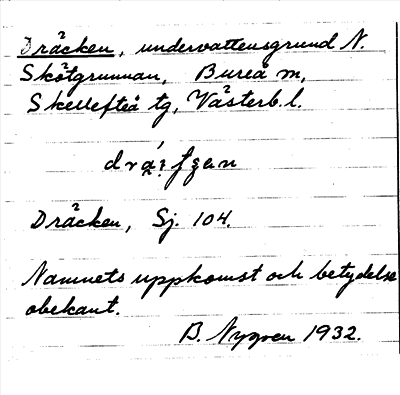 Dräcken, undervattensgrund N.
Skötgrunnan, Bureå sn,
Skellefteå tg, Västerb. l.
Dräcken, Sj. 104.
Namnets uppkomst och betydelse
obekant.
B. Nygren 1932.